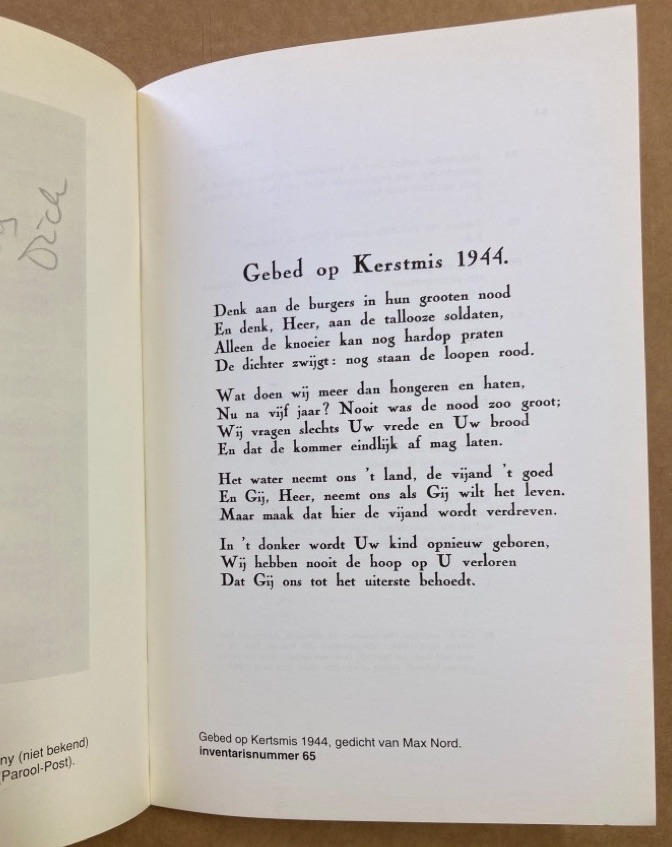 Dick
ny (niet bekend)
(Parool-Post).
Gebed op Kerstmis 1944.
Denk aan de burgers in hun grooten nood
En denk, Heer, aan de tallooze soldaten,
Alleen de knoeier kan nog hardop praten
De dichter zwijgt: nog staan de loopen rood.
Wat doen wij meer dan hongeren en haten,
Nu na vijf jaar? Nooit was de nood zoo groot;
Wij vragen slechts Uw vrede en Uw brood
En dat de kommer eindlijk af mag laten.
Het water neemt ons 't land, de vijand 't goed
En Gij, Heer, neemt ons als Gij wilt het leven.
Maar maak dat hier de vijand wordt verdreven.
In 't donker wordt Uw kind opnieuw geboren,
Wij hebben nooit de hoop op U verloren
Dat Gij ons tot het uiterste behoedt.
Gebed op Kertsmis 1944, gedicht van Max Nord.
inventarisnummer 65